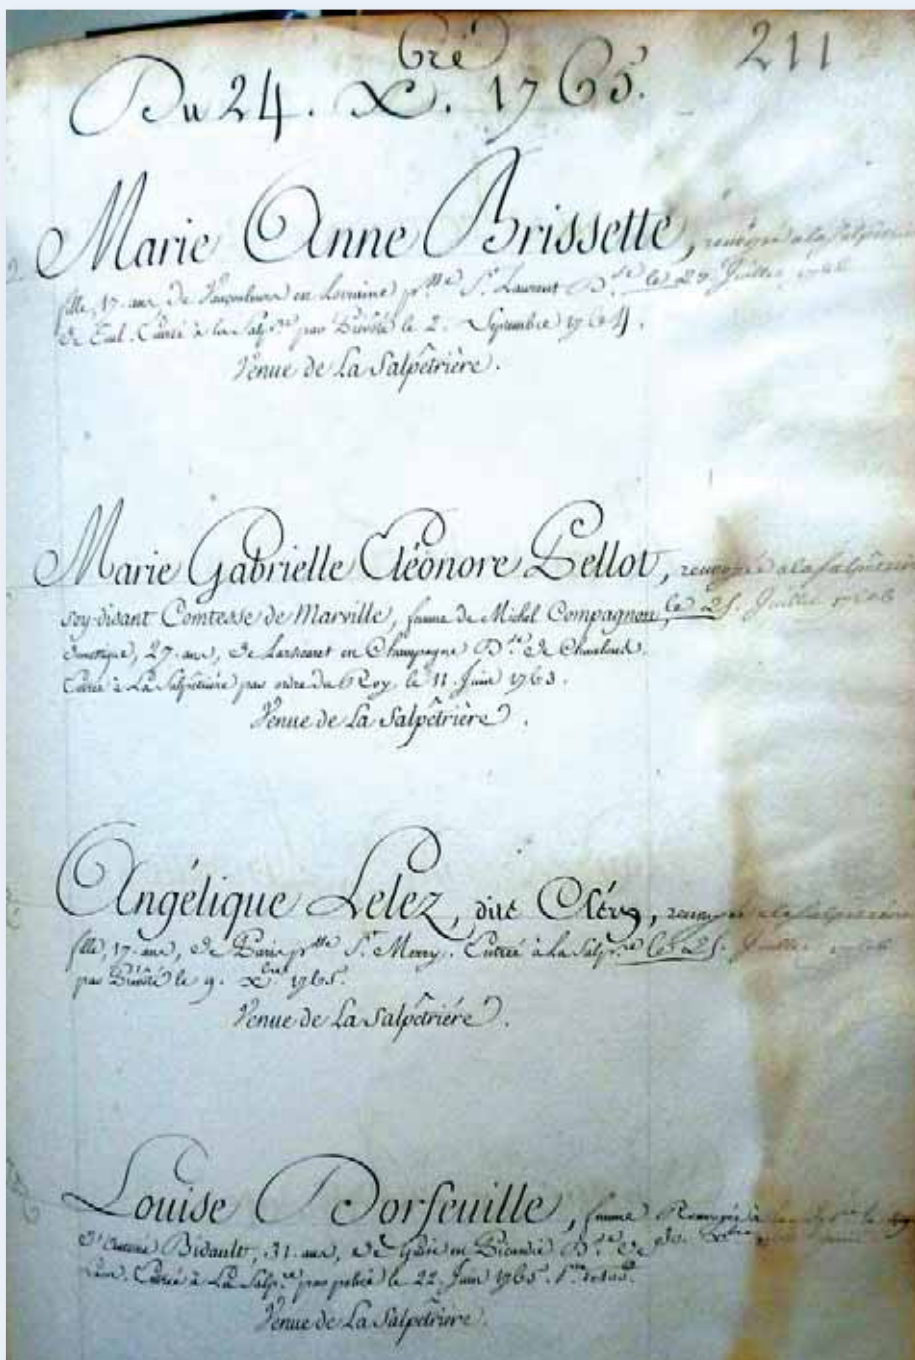 211
Du 24. Xbre 1765.
Marie Anne Brissette, renvoyée a la salpetriere
fille, 17. ans, de Vaucouleurs en Lorraine p.sse St. Laurent D.se le 25 Juillet 1766
de Tul. Entrée à la Salp.re par Prévôté le 2. Septembre 1764.
Venue de La Salpêtrière.
Marie Gabrielle Eléonore Pellot, renvoyée a la salpêtriere
soy-disant Comtesse de Marville, femme de Michel Compagnon, le 25. Juillet 1766
domestique, 27. ans, de en Champagne D.se de
Entrée à La Salpêtrière par ordre du Roy, le 11. Juin 1763.
Venue de La Salpêtrière.
Angélique Lelez, dite Cléry, renvoyée a la salpetriere
fille, 17. ans, de Paris p.sse St. Merry. Entrée à la Salp.re le 25. Juillet 1766
par Prévôté le 9. Xbre 1765.
Venue de La Salpêtrière.
Louise Dorfeuille, femme Renvoyée à la le
d'Antoine Bidault, 31. ans, de en Picardie D.se de
Entrée à La Salp.re par police le 22. Juin 1765.
Venue de La Salpêtrière.